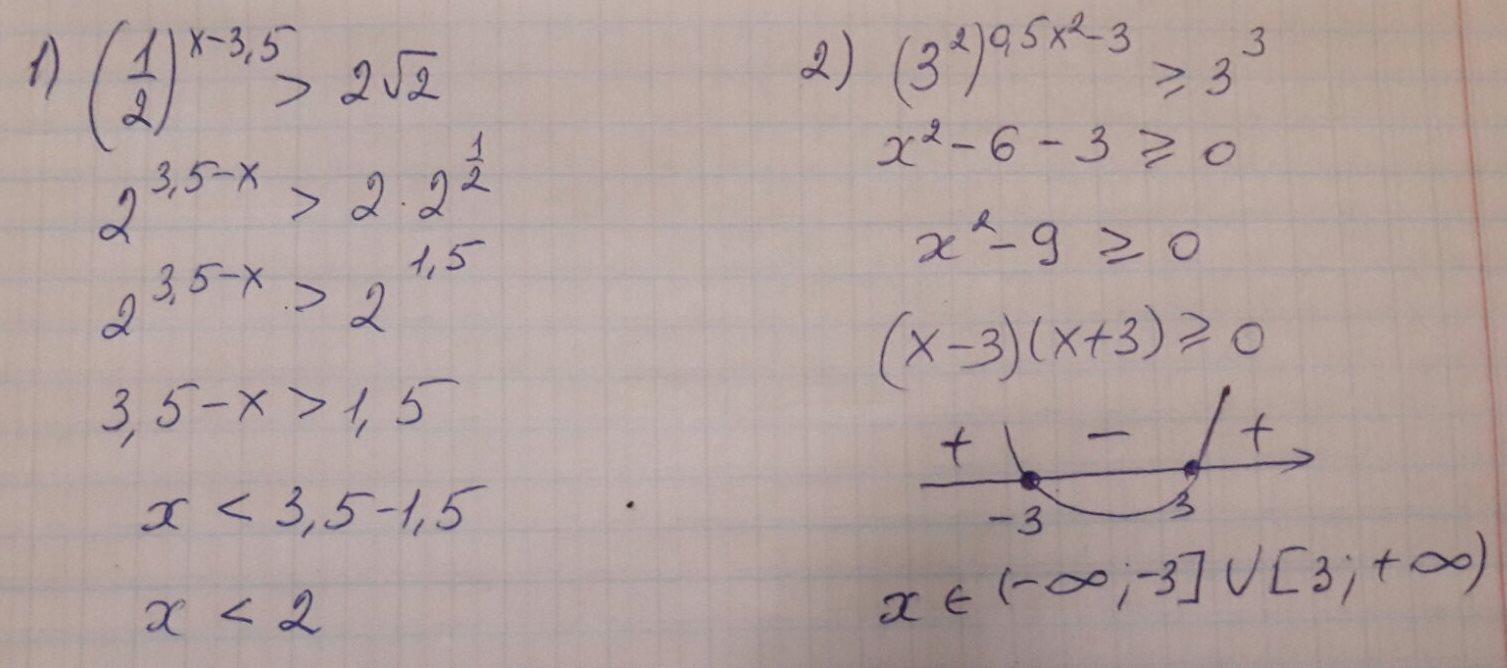 1) (1/2)^(x-3,5) > 2√2
2^(3,5-x) > 2 · 2^(1/2)
2^(3,5-x) > 2^(1,5)
3,5-x > 1,5
x < 3,5-1,5
x < 2
2) (3^2)^(0,5x^2-3) ≥ 3^3
x^2 - 6 - 3 ≥ 0
x^2 - 9 ≥ 0
(x-3)(x+3) ≥ 0
+ − +
-3 3
x ∈ (-∞;-3] ∪ [3;+∞)